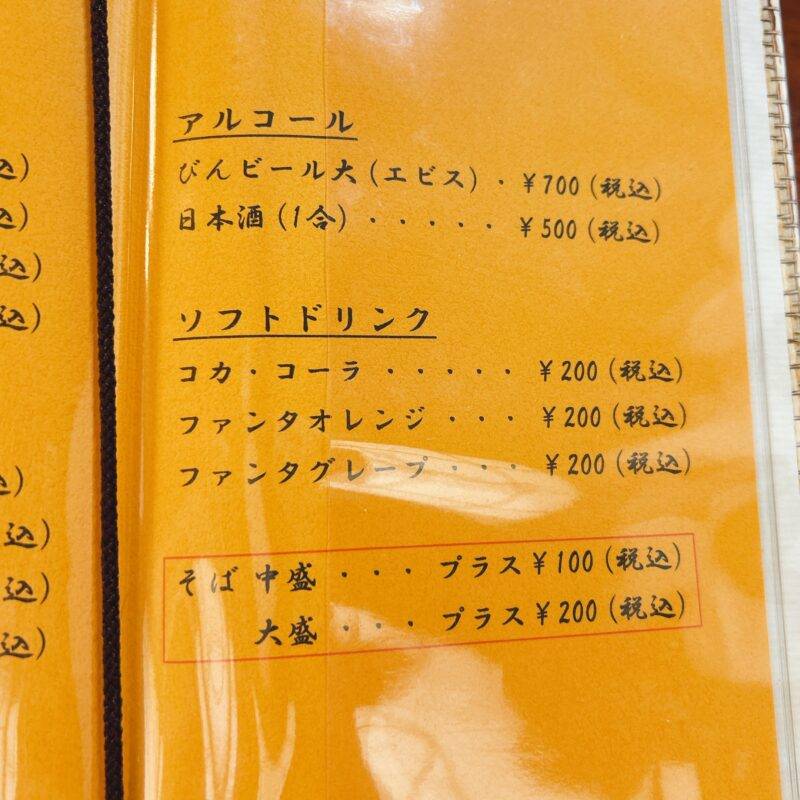 アルコール
びんビール大(エビス)・¥700(税込)
日本酒(1合)・・・・・¥500(税込)
ソフトドリンク
コカ・コーラ・・・・・¥200(税込)
ファンタオレンジ・・・¥200(税込)
ファンタグレープ・・・¥200(税込)
そば 中盛・・・プラス¥100(税込)
大盛・・・プラス¥200(税込)